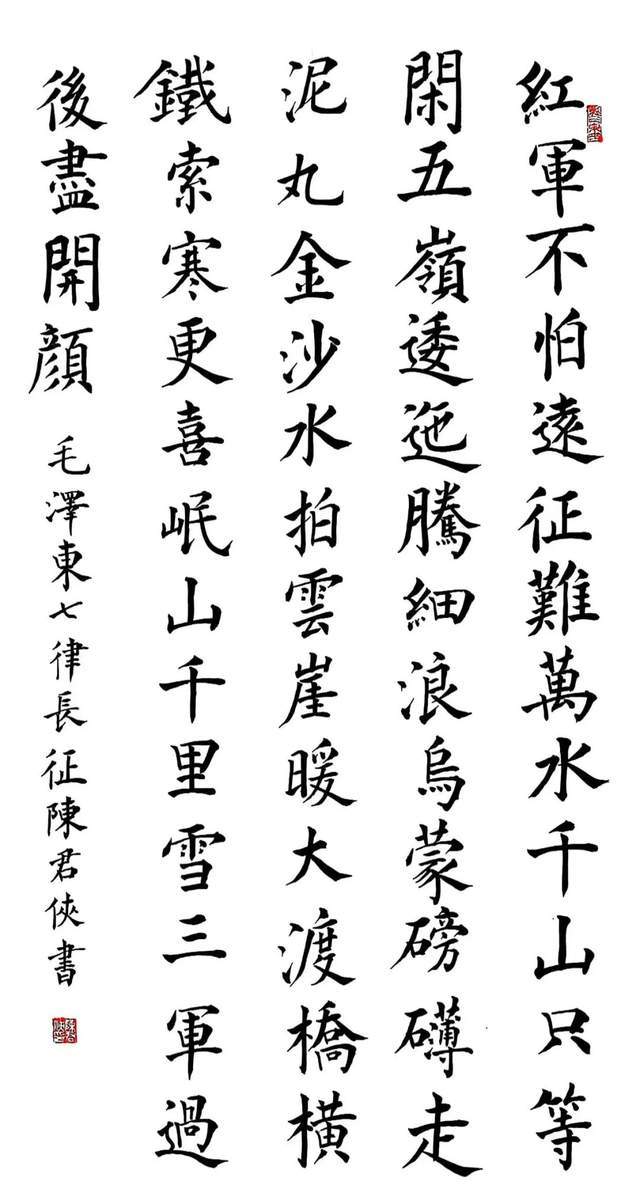 紅軍不怕遠征難萬水千山只等
閑五嶺逶迤騰細浪烏蒙磅礴走
泥丸金沙水拍雲崖暖大渡橋橫
鐵索寒更喜岷山千里雪三軍過
後盡開顏
毛澤東七律長征陳君俠書